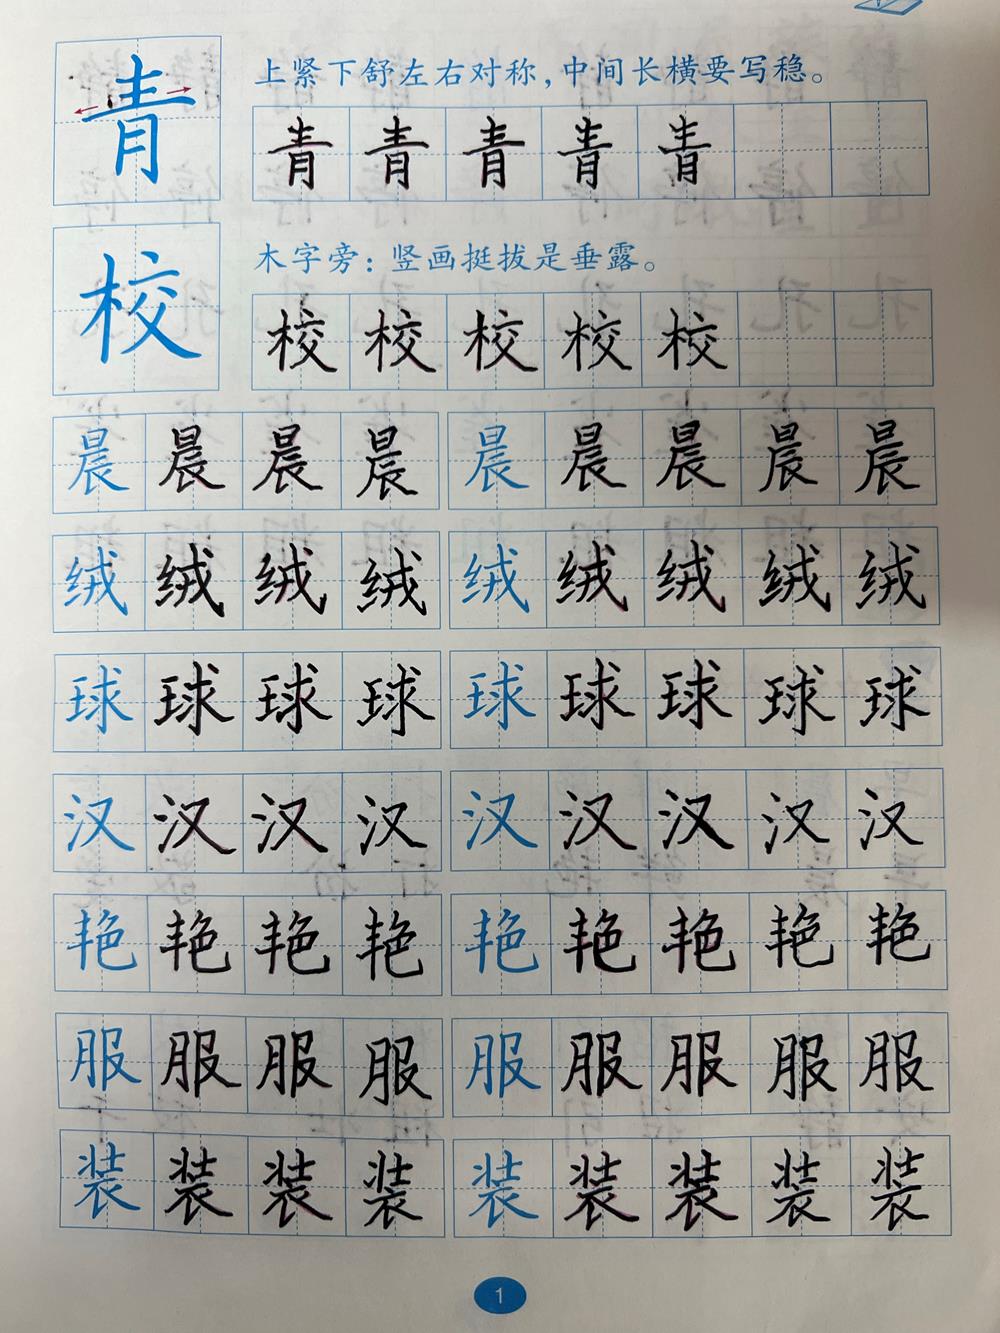 青
上紧下舒左右对称，中间长横要写稳。
青青青青青
校
木字旁：竖画挺拔是垂露。
校校校校校
晨晨晨晨晨晨晨晨晨
绒绒绒绒绒绒绒绒绒
球球球球球球球球球
汉汉汉汉汉汉汉汉汉
艳艳艳艳艳艳艳艳艳
服服服服服服服服服
装装装装装装装装装
1